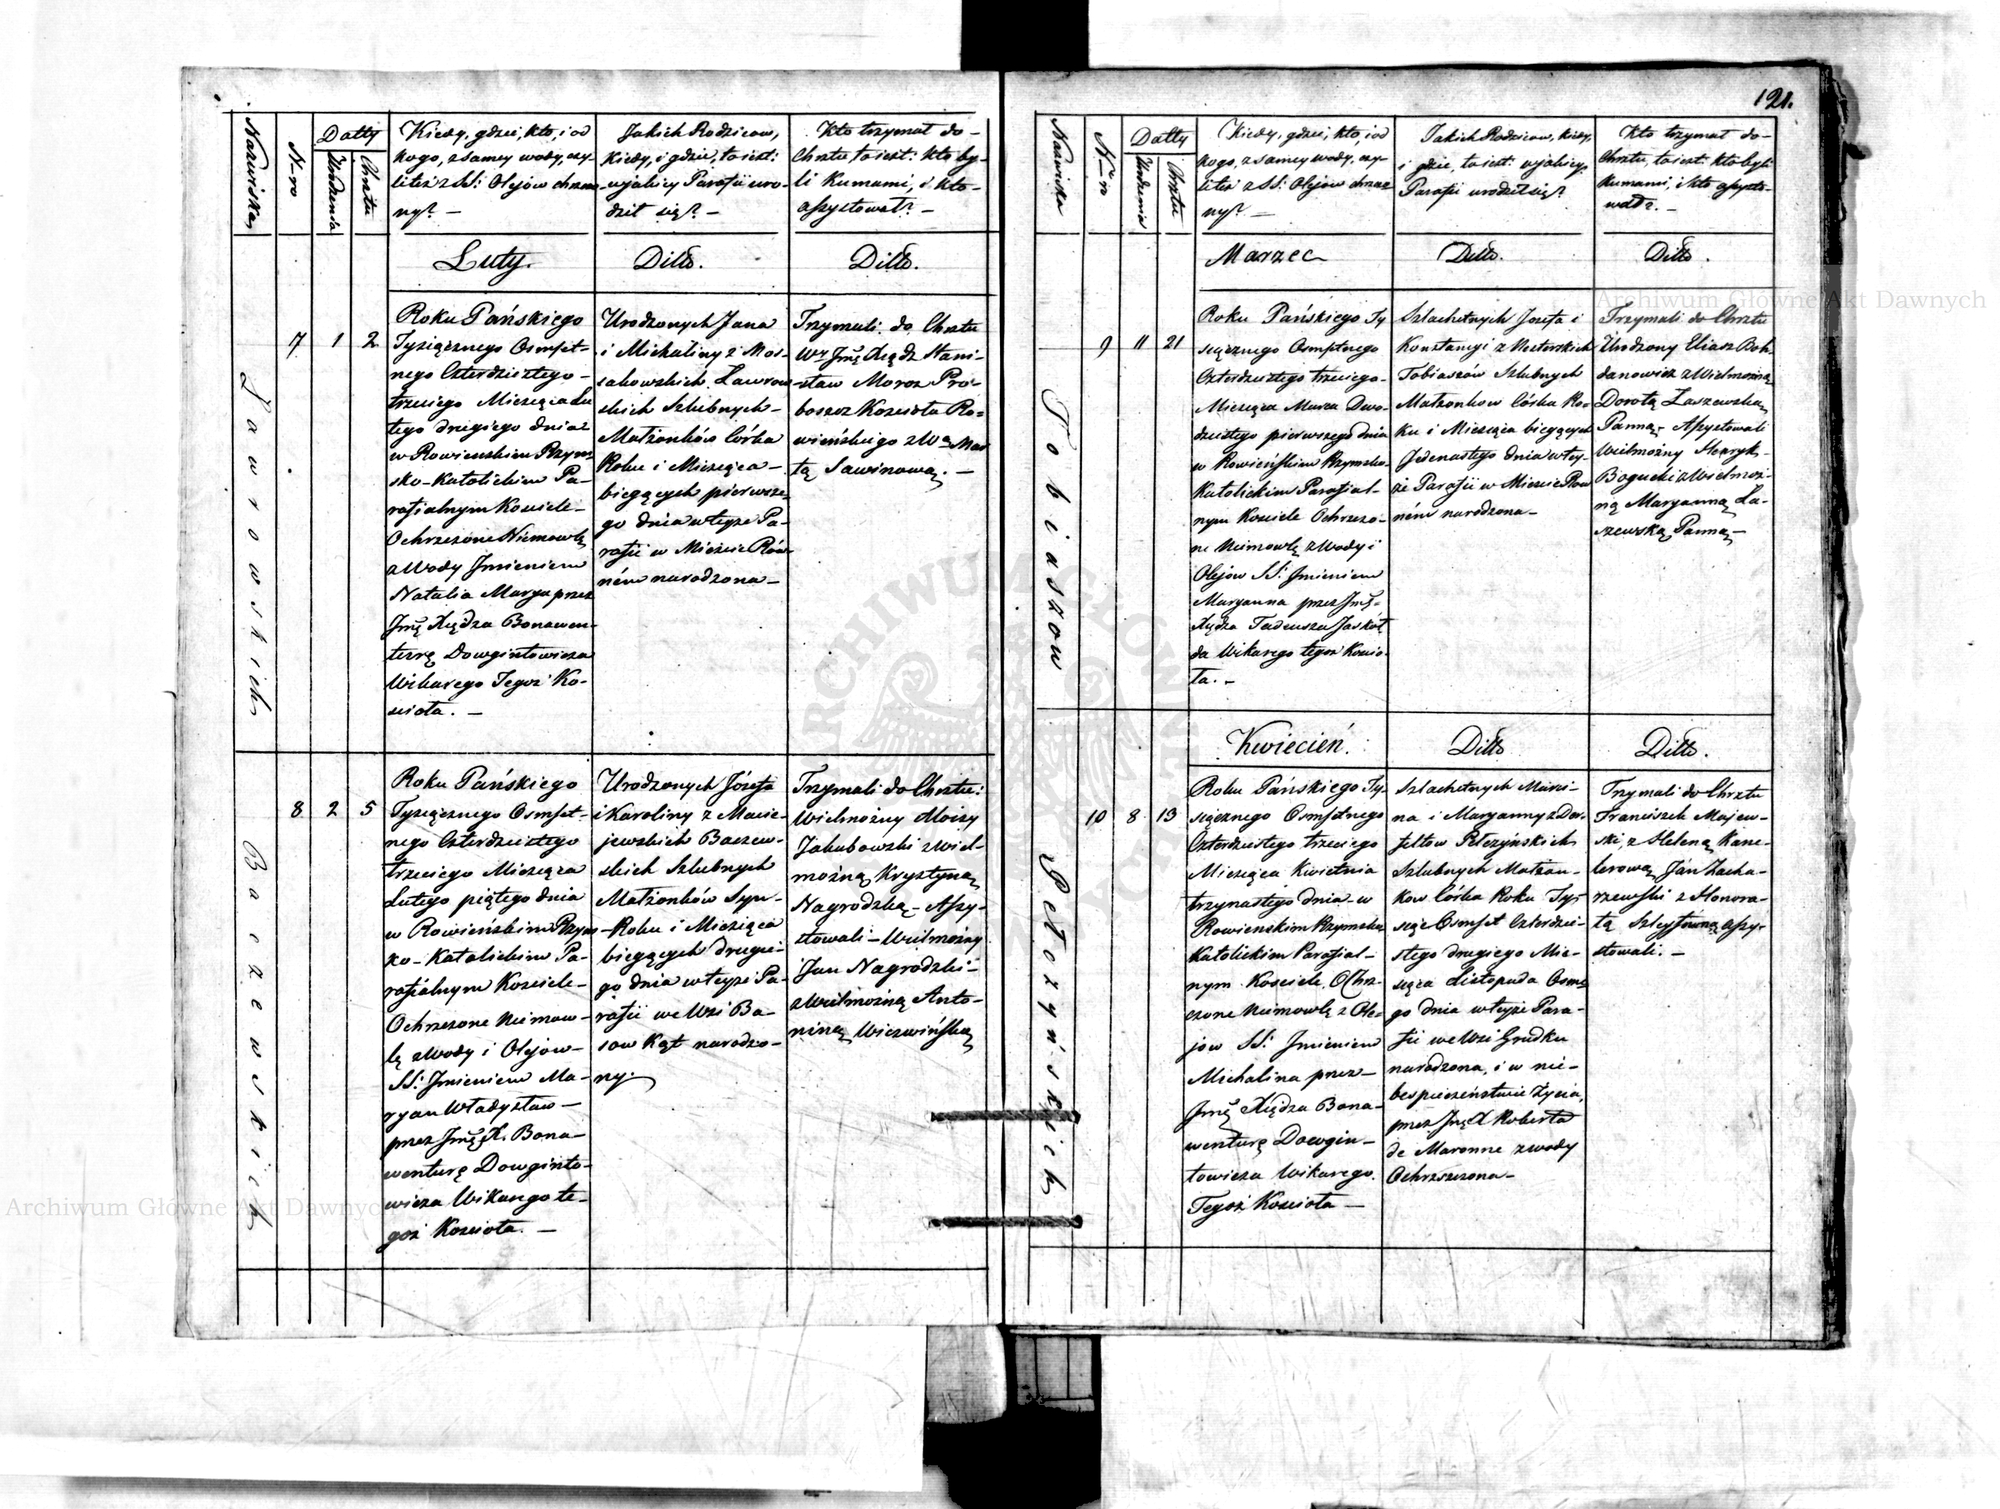 121.
Nazwiska
N-ro
Datty
Urodzenia
Chrztu
Kiedy, gdzie, kto, i od
kogo, z samey wody, czy-
li też z SS: Olejów chrzczo-
ny? —
Jakich Rodziców,
kiedy, i gdzie, to iest:
w jakiey Parafii uro-
dził się? —
Kto trzymał do-
Chrztu to iest: kto by-
li Kumami, i kto-
assystował? —
Luty.
Ditto.
Ditto.
Lawrowskich
7
1
2
Roku Pańskiego
Tysiącznego Osmset-
nego Czterdziestego-
trzeciego Miesiąca Lu
tego drugiego dnia
w Rowienskim Rzym
sko-Katolickim Pa-
rafialnym Kosciele-
Ochrzczone Niemowlę
z Wody Jmieniem
Natalia Marya przez
Jmę Xiędza Bonawen-
turę Dowgintowicza
Wikarego Tegoż Ko-
scioła. —
Urodzonych Jana
i Michaliny z Mos-
sakowskich Lawrow
skich Szlubnych-
Małżonków Córka
Roku i Miesiąca-
bieżących pierwsze-
go dnia w teyże Pa-
rafii w Mieście Rów-
ném narodzona—
Trzymali do Chrztu
Wy Jmę Xiądz Stani-
sław Moroz Pro-
boszcz Kościoła Ro-
wieńskiego z Wą Mar
tą Sawinową. —
8
2
5
Baczewskich
Roku Pańskiego
Tysiącznego Osmset-
nego Czterdziestego
trzeciego Miesiąca
Lutego piątego dnia
w Rowieńskim Rzyms
ko-Katolickim Pa-
rafialnym Kosciele-
Ochrzczone Niemow-
lę z Wody i Olejow-
SS: Jmieniem Ma-
ryan Władysław—
przez Jmę X. Bona-
wenturę Dowginto-
wicza Wikarego te-
goż Kościoła. —
Urodzonych Józefa
i Karoliny z Macie-
jewskich Baczew-
skich Szlubnych
Małżonków Syn-
Roku i Miesiąca
bieżących drugie-
go dnia w teyże Pa-
rafii we Wsi Ba-
sow Kąt narodzo-
ny.
Trzymali do Chrztu:
Wielmożny Moizy
Jakubowski z Wiel-
możną Krystyną
Nagrodzką- Assy-
stowali- Wielmożny
Jan Nagrodzki-
z Wielmożną Anto-
niną Wiszwińską
Nazwiska
N-ro
Datty
Urodzenia
Chrztu
Kiedy, gdzie, kto, i od
kogo, z samey wody, czy-
li też z SS: Olejów chrzczo
ny? —
Jakich Rodziców, kiedy,
i gdzie, to iest: w jakiey
Parafii urodził się?
Kto trzymał do-
Chrztu, to iest: kto byli
Kumami, i kto assysto-
wał? —
Marzec
Ditto.
Ditto.
9
11
21
Tobiaszow
Roku Pańskiego Ty
siącznego Osmsetnego
Czterdziestego trzeciego-
Miesiąca Marca Dwu-
dziestego pierwszego dnia
w Rowieńskim Rzymsko-
Katolickim Parafial-
nym Kosciele Ochrzczo-
ne Niemowlę z Wody i
Olejow SS: Jmieniem
Maryanna przez Jmę-
Xiędza Tadeusza Jaskół
da Wikarego tegoż Kościo-
ła. —
Szlachetnych Jozefa i
Konstancyi z Nestorskich
Tobiaszów Szlubnych
Małżonkow Córka Ro-
ku i Miesiąca bieżących
Jedenastego dnia w tey-
że Parafii w Mieście Row
ném narodzona—
Trzymali do Chrztu
Urodzony Eliasz Boh-
danowicz z Wielmożną
Dorotą Laszewską
Panną- Assystowali
Wielmożny Henryk-
Bogucki z Wielmoż-
ną Maryanną La-
szewską Panną—
Kwiecień.
Ditto
Ditto.
10
8
13
Pełczyńskich
Roku Pańskiego Ty-
siącznego Osmsetnego
Czterdziestego trzeciego
Miesiąca Kwietnia
trzynastego dnia- w
Rowienskim Rzymsko
Katolickim Parafial-
nym Kosciele, Ochrz-
czone Niemowlę z Ole-
jow SS: Jmieniem
Michalina przez—
Jmę Xiędza Bona-
wenturę Dowgin-
towicza Wikarego.
Tegoż Kościoła —
Szlachetnych Marci-
na i Maryanny z Dor-
Pełczyńskich
Szlubnych Małżon-
kow Córka Roku Ty-
siąc Osmset Czterdzie-
stego drugiego Mie-
siąca Listopada Osme
go dnia w teyże Para-
fii we Wsi Grudku
narodzona, i w nie-
bespieczeństwie życia,
przez Jmę X Roberta
de Maronne z wody
Ochrzczona—
Trzymali do Chrztu
Franciszek Majew-
ski, z Heleną Kanc-
lerową, Ján Zacha-
rzewski z Honora-
tą assy-
stowali. —
Archiwum Główne Akt Dawnych
Archiwum Główne Akt Dawnych